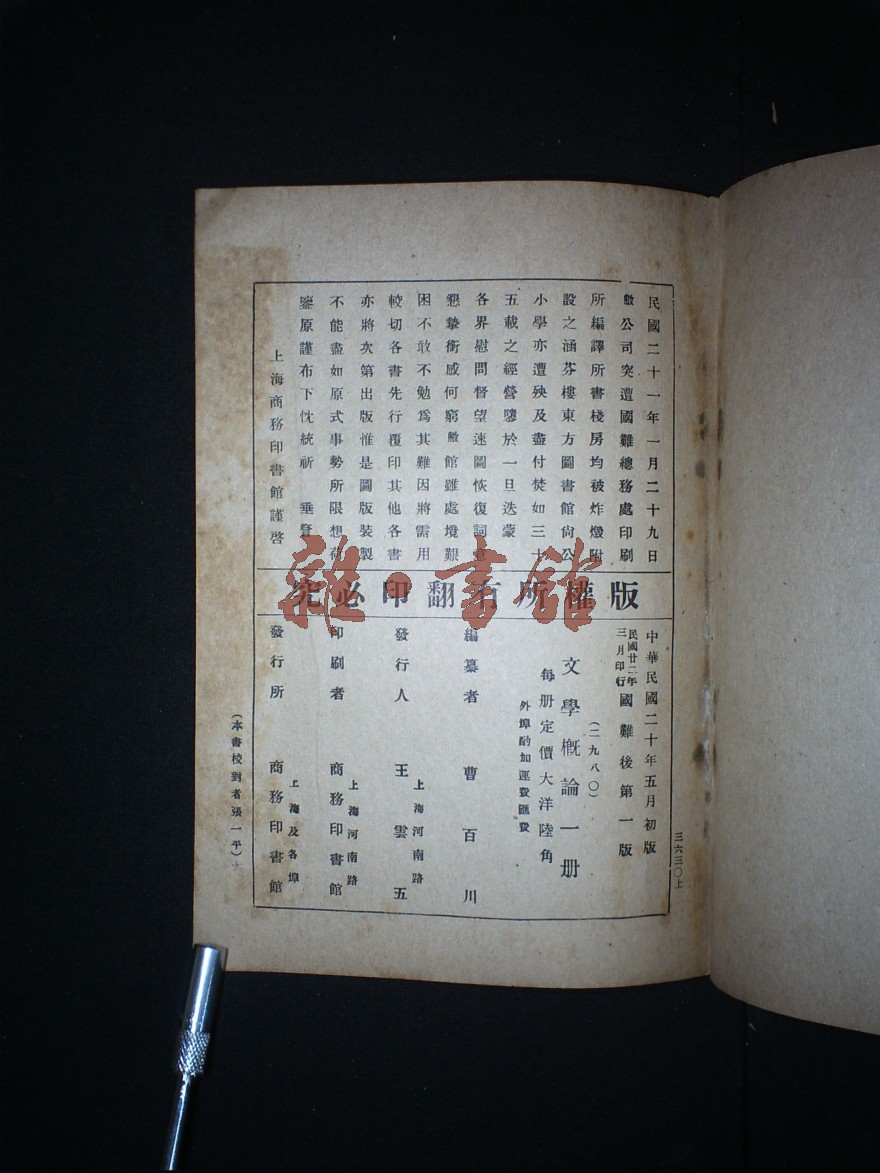 民國二十一年一月二十九日
敝公司突遭國難總務處印刷
所編譯所書棧房均被炸燬附
設之涵芬樓東方圖書館尚公
小學亦遭殃及盡付焚如三十
五載之經營隳於一旦迭蒙
各界慰問督望速圖恢復詞意
懇摯銜感何窮敝館雖處境艱
困不敢不勉爲其難因將需用
較切各書先行覆印其他各書
亦將次第出版惟是圖版裝製
不能盡如原式事勢所限想荷
鑒原謹布下忱統祈 垂詧
上海商務印書館謹啓
版權所有翻印必究
中華民國二十年五月初版
民國廿二年三月印行國難後第一版
(二九八〇)
文學概論一册
每册定價大洋陸角
外埠酌加運費匯費
編纂者 曹百川
上海河南路
發行人 王雲五
上海河南路
印刷者 商務印書館
上海及各埠
發行所 商務印書館
(本書校對者張一平)
三六三〇上
雜·書館